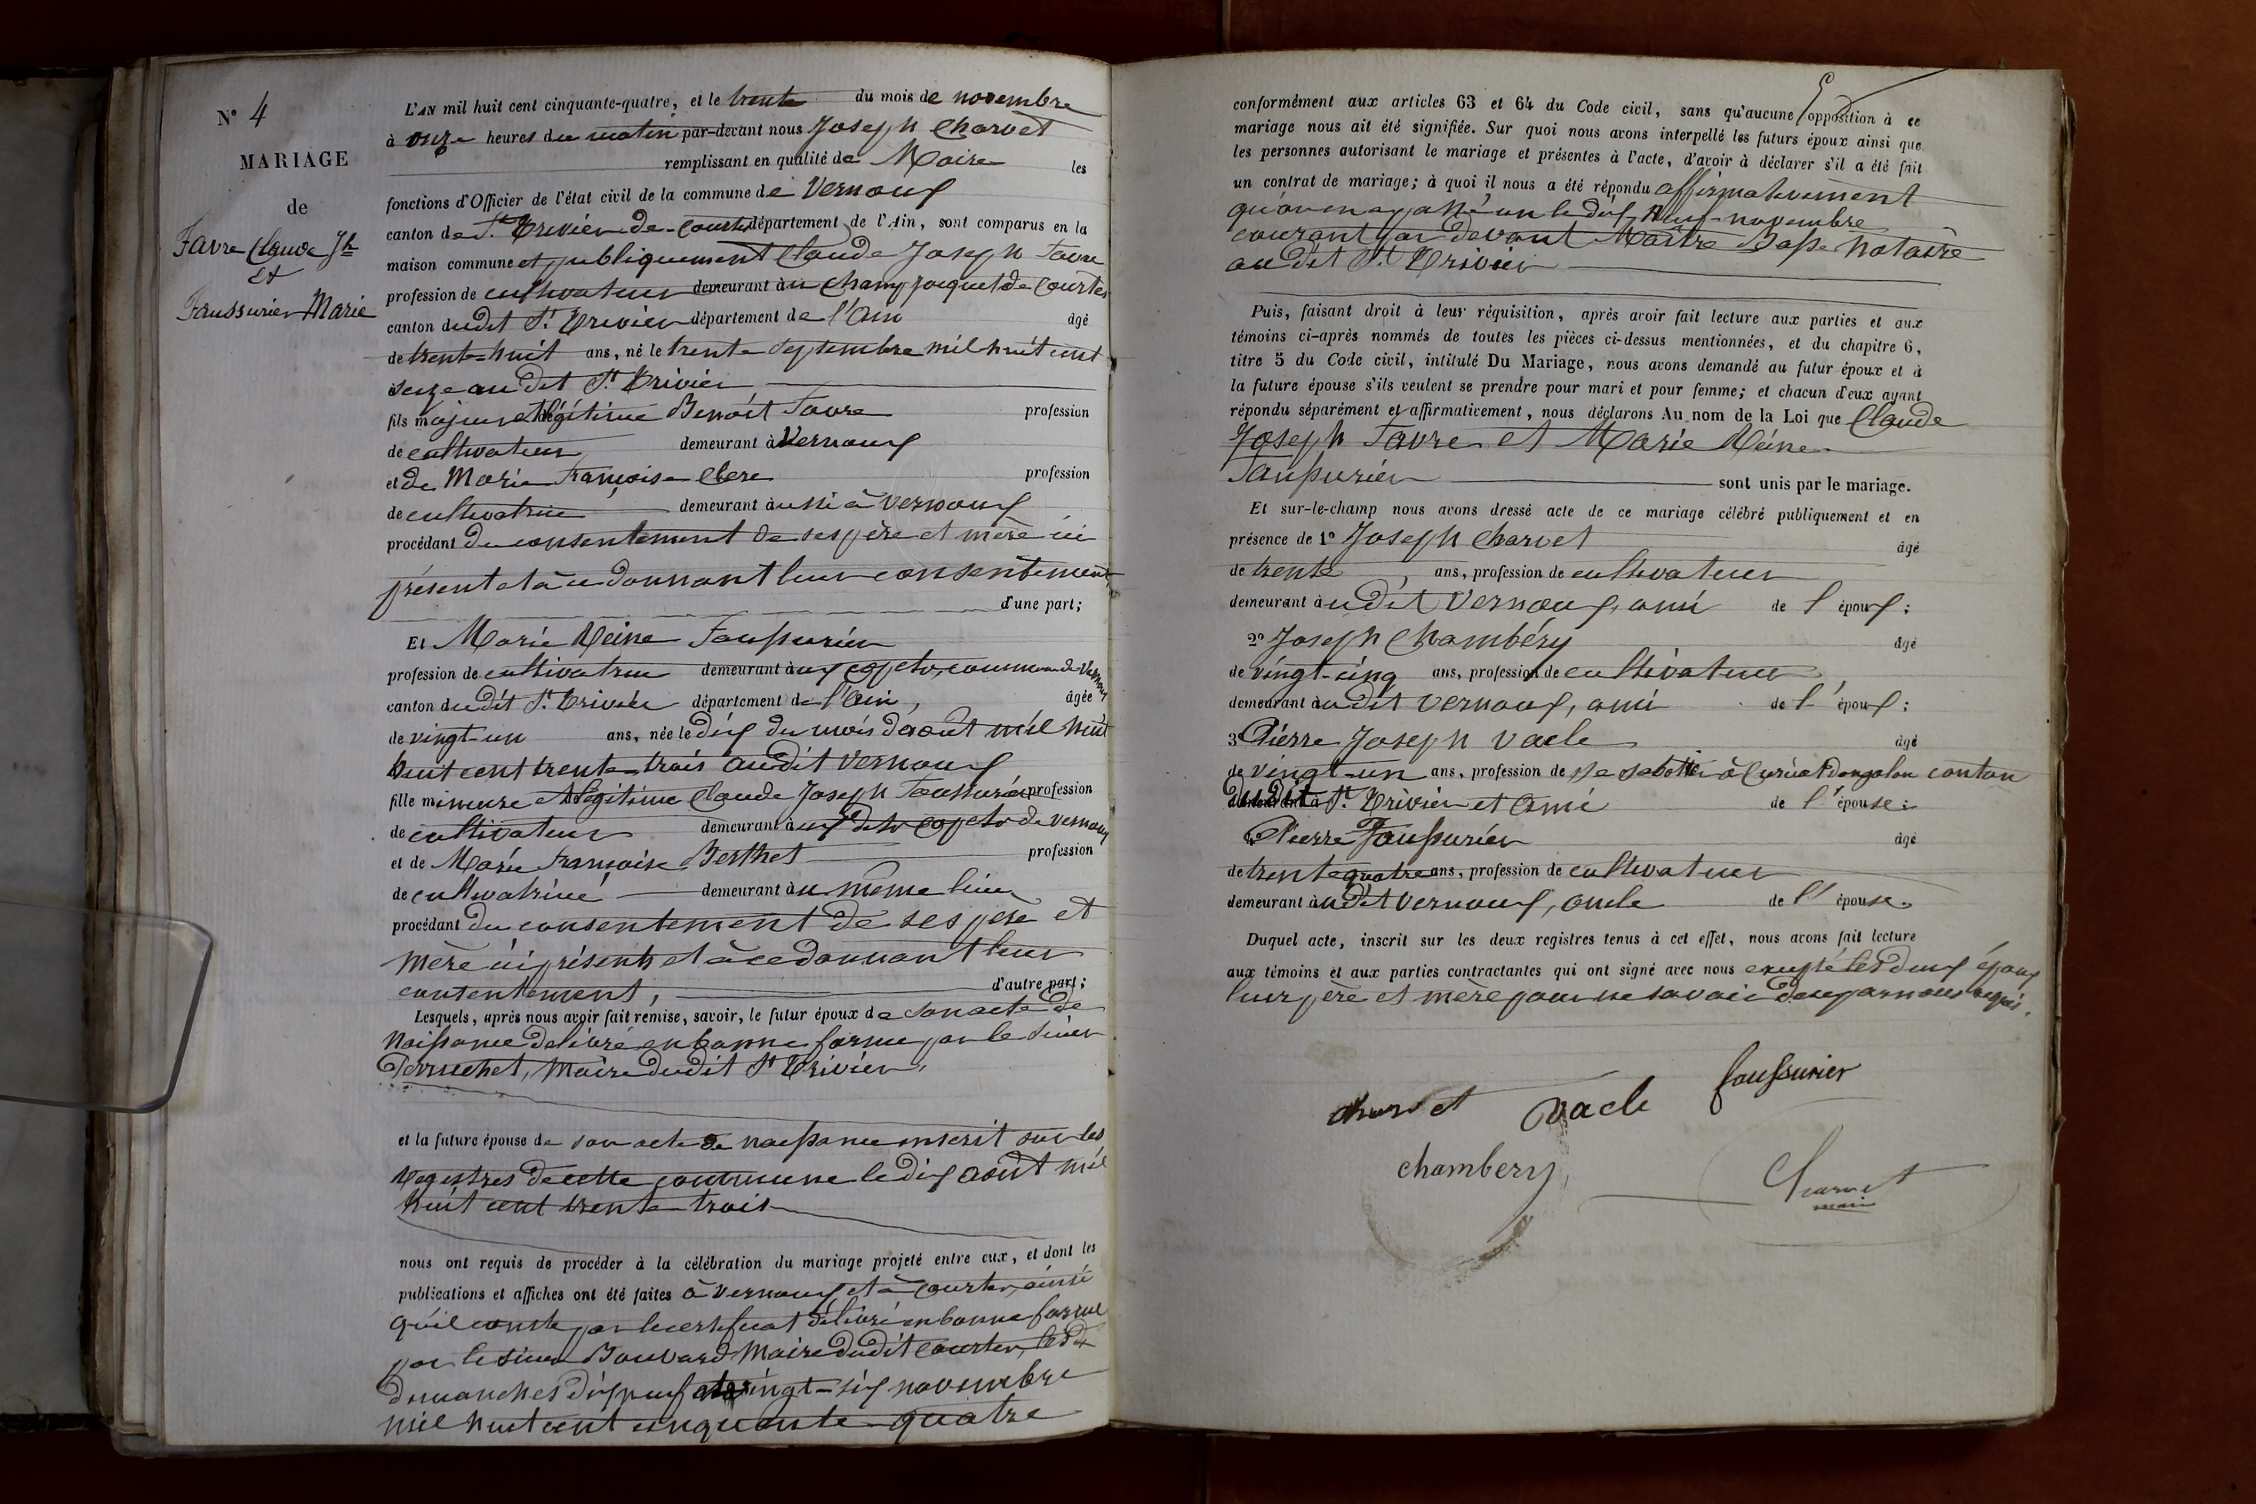 N° 4
MARIAGE
de
Favre Claude Jh
Et
Faussurier Marie
L'AN mil huit cent cinquante-quatre, et le trente du mois de novembre
à onze heures du matin par-devant nous Joseph Charvet
remplissant en qualité de Maire les
fonctions d'Officier de l'état civil de la commune de Vernoux
canton de St. Trivier de Courtes département de l'Ain, sont comparus en la
maison commune et publiquement Claude Joseph Favre
profession de cultivateur demeurant à un Champ Jacquet de Courtes
canton dudit St. Trivier département de l'Ain âgé
de trente-huit ans, né le trente Septembre mil huit cent
seize audit St. Trivier
fils majeur et légitime Benoît Favre profession
de cultivateur demeurant à Vernoux
et de Marie Françoise Clerc profession
de cultivatrice demeurant aussi à Vernoux
procédant du consentement de ses père et mère ici
présent et à ce donnant leur consentement
d'une part;
Et Marie Reine Faussurier
profession de cultivatrice demeurant aux commune de Vernoux
canton dudit St. Trivier département de l'Ain, âgée
de vingt-un ans, née le dix du mois d'août mil huit
huit cent trente-trois audit Vernoux
fille mineure et légitime Claude Joseph Faussurier profession
de cultivateur demeurant aux de Vernoux
et de Marie Françoise Berthet profession
de cultivatrice demeurant au même lieu
procédant du consentement de ses père et
mère ici présents et à ce donnant leur
consentement, d'autre part;
Lesquels, après nous avoir fait remise, savoir, le futur époux de son acte de
Naissance délivré en bonne forme par le sieur
Perruchet, Maire dudit St Trivier,
et la future épouse de son acte de naissance inscrit sur les
Registres de cette commune le dix août mil
huit cent trente trois
nous ont requis de procéder à la célébration du mariage projeté entre eux, et dont les
publications et affiches ont été faites à Vernoux et à Courtes, ainsi
qu'il conste par le certificat délivré en bonne forme
par le sieur Bouvard Maire dudit Courtes, les
dimanches dix neuf et vingt-six novembre
mil huit cent cinquante-quatre
conformément aux articles 63 et 64 du Code civil, sans qu'aucune opposition à ce
mariage nous ait été signifiée. Sur quoi nous avons interpellé les futurs époux ainsi que
les personnes autorisant le mariage et présentes à l'acte, d'avoir à déclarer s'il a été fait
un contrat de mariage; à quoi il nous a été répondu affirmativement
qu'on en a passé un le dix neuf novembre
courant par devant Maître Basse Notaire
audit St. Trivier
Puis, faisant droit à leur réquisition, après avoir fait lecture aux parties et aux
témoins ci-après nommés de toutes les pièces ci-dessus mentionnées, et du chapitre 6,
titre 5 du Code civil, intitulé Du Mariage, nous avons demandé au futur époux et à
la future épouse s'ils veulent se prendre pour mari et pour femme; et chacun d'eux ayant
répondu séparément et affirmativement, nous déclarons Au nom de la Loi que Claude
Joseph Favre et Marie Reine
Faussurier sont unis par le mariage.
Et sur-le-champ nous avons dressé acte de ce mariage célébré publiquement et en
présence de 1° Joseph Charvet âgé
de trente ans, profession de cultivateur
demeurant audit Vernoux, ami de l'époux;
2° Joseph Chambéry âgé
de vingt-cinq ans, profession de cultivateur
demeurant audit Vernoux, ami de l'époux;
3° Pierre Joseph Vacle âgé
de vingt-un ans, profession de sabotier à Curciat Dongalon canton
dudit St. Trivier et Ami de l'épouse;
4° Pierre Faussurier âgé
de trente quatre ans, profession de cultivateur
demeurant audit Vernoux, oncle de l'épouse.
Duquel acte, inscrit sur les deux registres tenus à cet effet, nous avons fait lecture
aux témoins et aux parties contractantes qui ont signé avec nous excepté les deux époux
leur père et mère pour ne savoir de ce par nous requis.
faussurier
charvet vacle
chambery
Charvet
maire